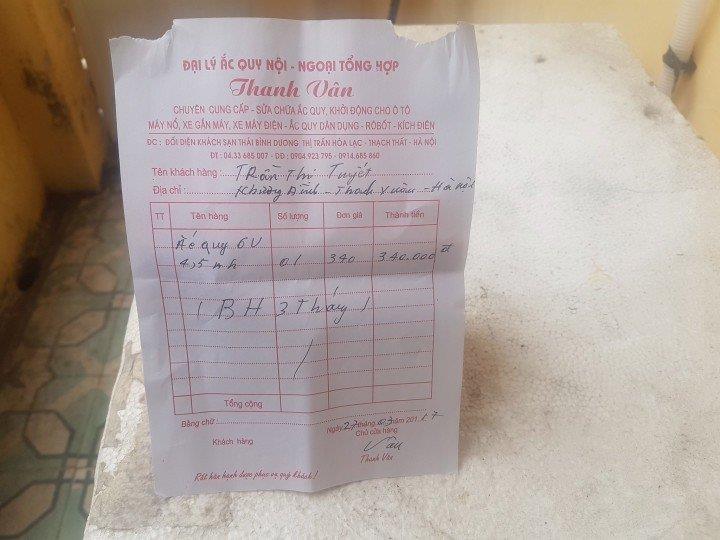 ĐẠI LÝ ẮC QUY NỘI - NGOẠI TỔNG HỢP
Thanh Vân
CHUYÊN CUNG CẤP - SỬA CHỮA ẮC QUY, KHỞI ĐỘNG CHO Ô TÔ
MÁY NỔ, XE GẮN MÁY, XE MÁY ĐIỆN - ẮC QUY DÂN DỤNG - RÔBỐT - KÍCH ĐIỆN
ĐC : ĐỐI DIỆN KHÁCH SẠN THÁI BÌNH DƯƠNG THỊ TRẤN HÒA LẠC - THẠCH THẤT - HÀ NỘI
ĐT : 04.33 685 007 - DĐ : 0904.923 795 - 0914.685 860
Tên khách hàng : Trần Thị Tuyết
Địa chỉ : Khương Đình - Thanh Xuân - Hà Nội
TT Tên hàng Số lượng Đơn giá Thành tiền
Ắc quy 6V
4,5 mh 01 340 340.000 đ
( BH 3 Tháng )
Tổng cộng
Bằng chữ
Ngày 27 tháng 03 năm 201 17
Khách hàng Chủ cửa hàng
Vân
Thanh Vân
Rất hân hạnh được phục vụ quý khách !